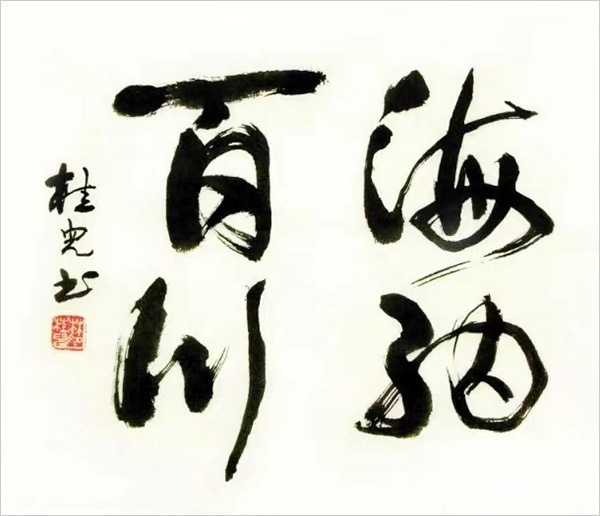 海纳
百川
桂光书